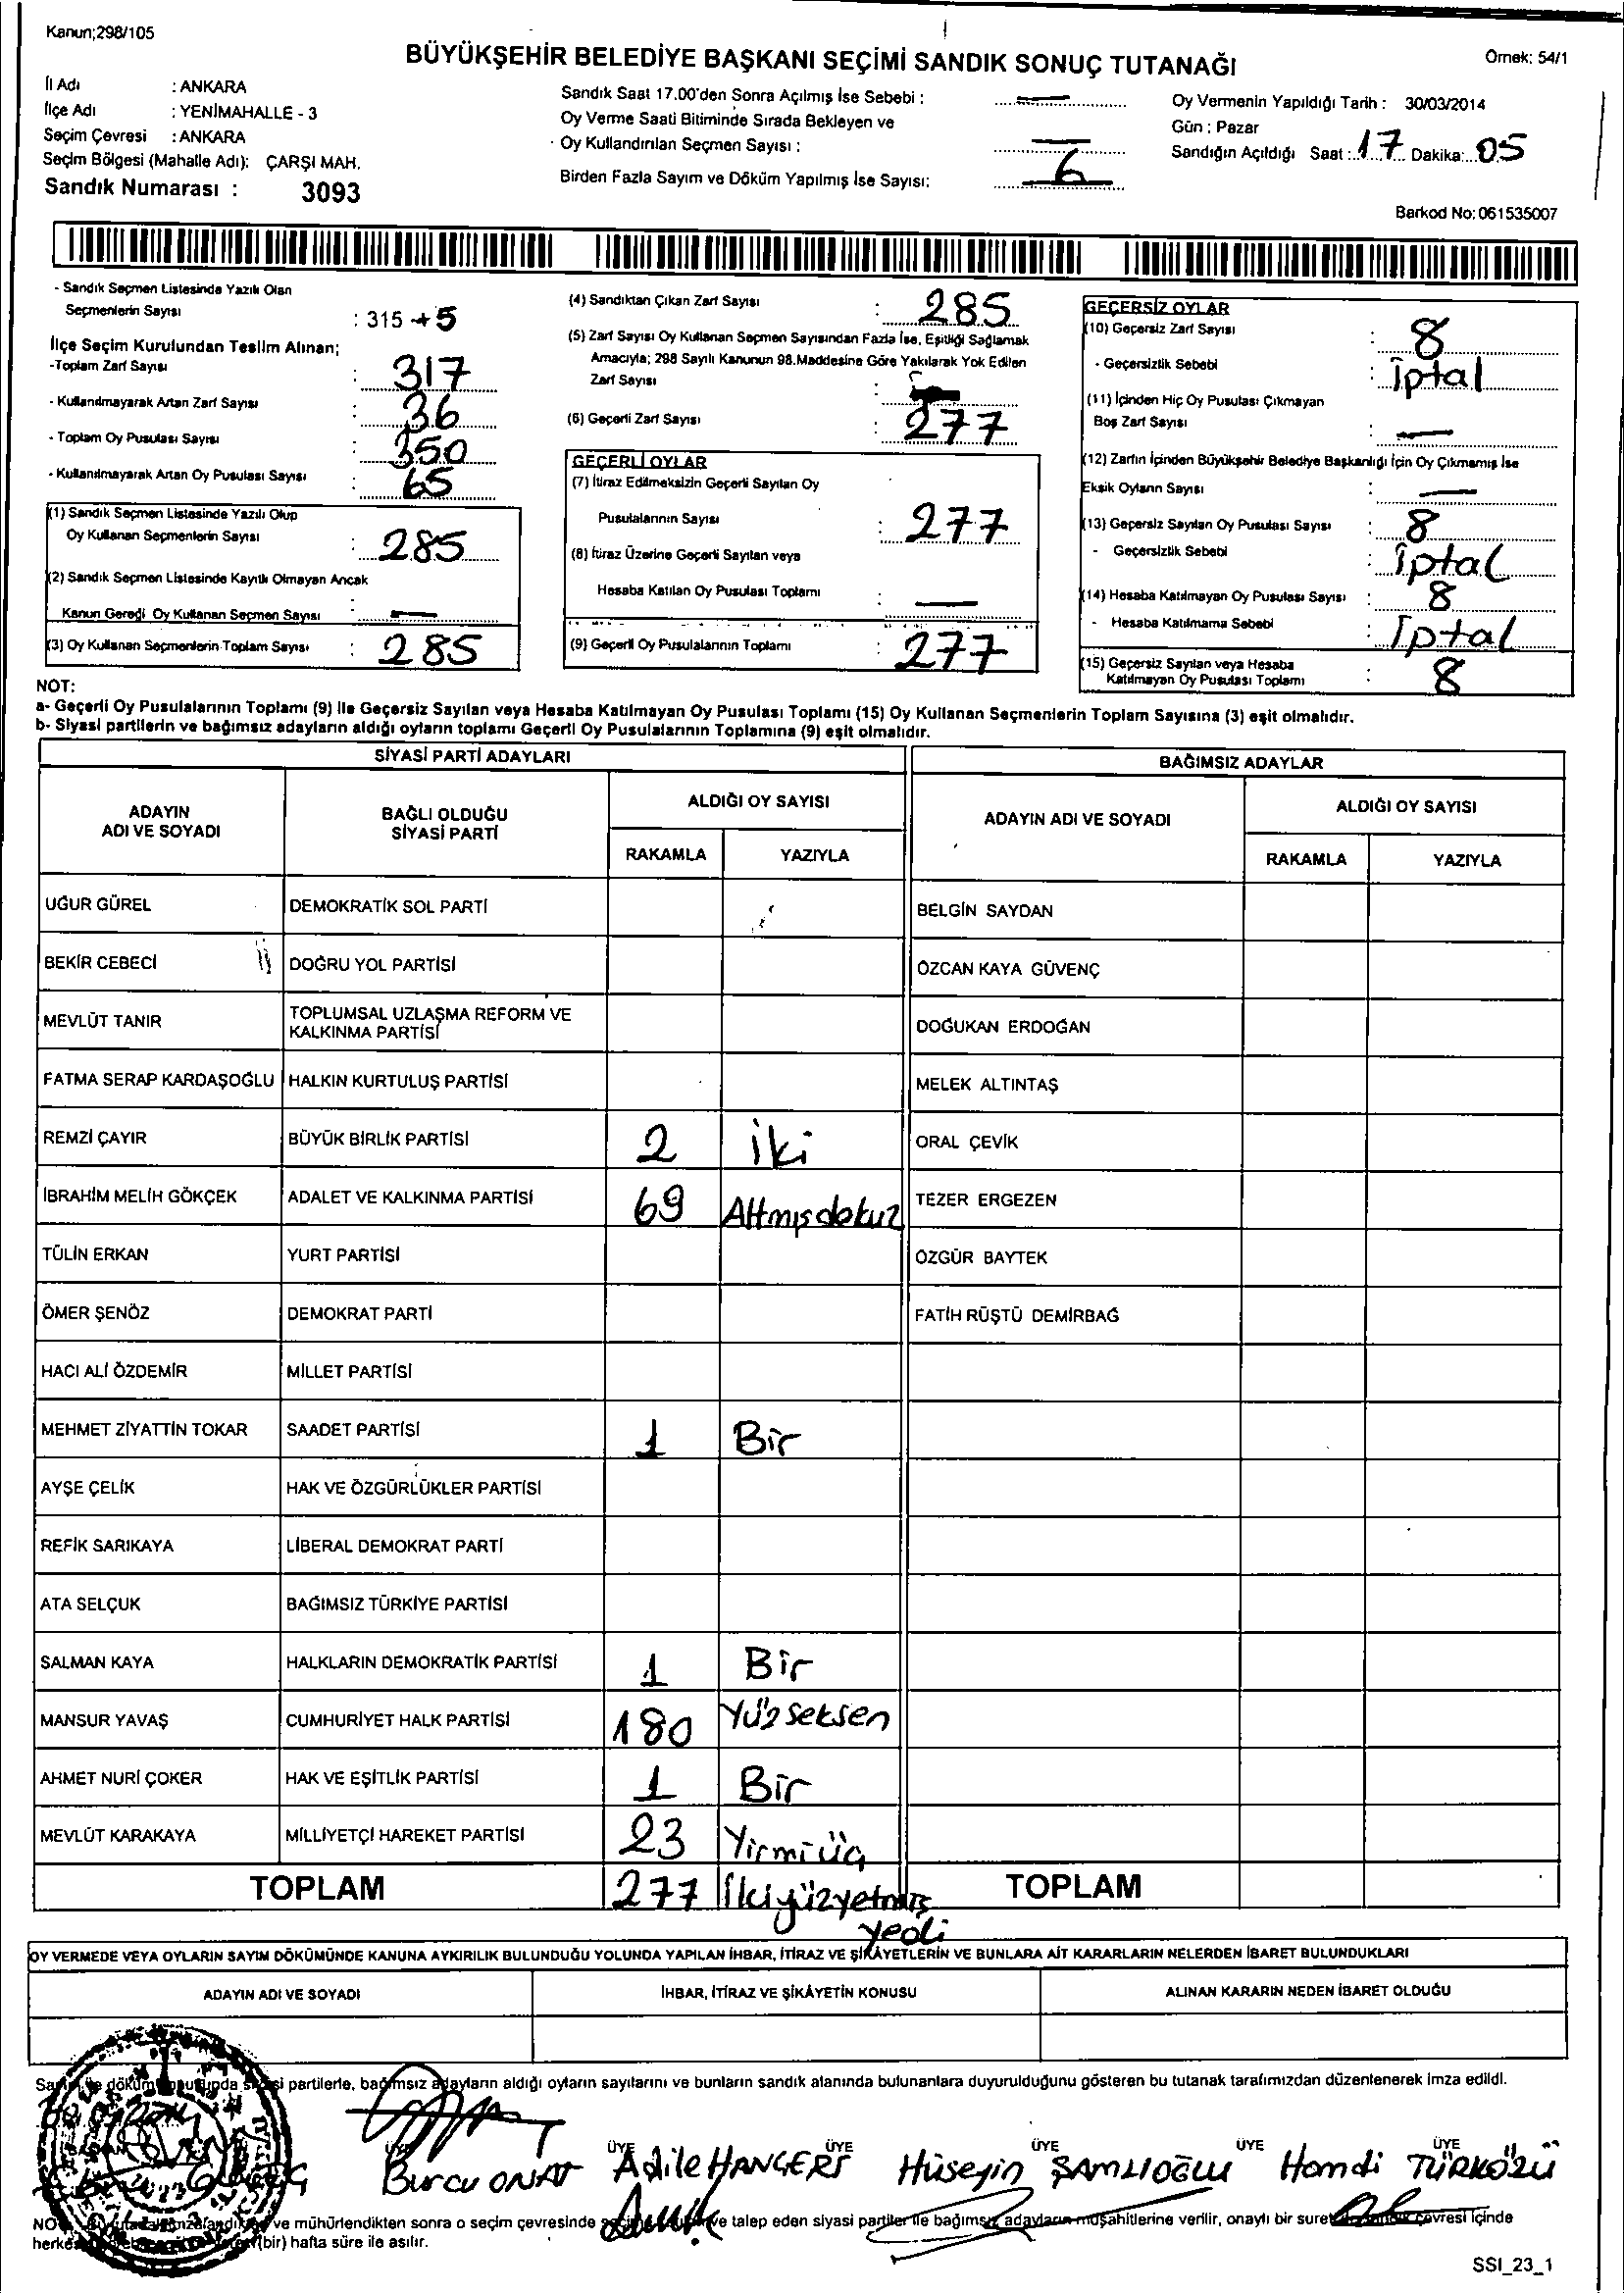 Kanun;298/105
BÜYÜKŞEHİR BELEDİYE BAŞKANI SEÇİMİ SANDIK SONUÇ TUTANAĞI
Örnek: 54/1
İl Adı : ANKARA
İlçe Adı : YENİMAHALLE - 3
Seçim Çevresi : ANKARA
Seçim Bölgesi (Mahalle Adı): ÇARŞI MAH.
Sandık Numarası : 3093
Sandık Saat 17.00'den Sonra Açılmış İse Sebebi : —
Oy Verme Saati Bitiminde Sırada Bekleyen ve
Oy Kullandırılan Seçmen Sayısı : —
Birden Fazla Sayım ve Döküm Yapılmış İse Sayısı: 6
Oy Vermenin Yapıldığı Tarih : 30/03/2014
Gün : Pazar
Sandığın Açıldığı Saat : 17 Dakika: 05
Barkod No: 061535007
- Sandık Seçmen Listesinde Yazılı Olan
Seçmenlerin Sayısı : 315 +5
İlçe Seçim Kurulundan Teslim Alınan;
-Toplam Zarf Sayısı : 317
- Kullanılmayarak Artan Zarf Sayısı : 36
- Toplam Oy Pusulası Sayısı : 350
- Kullanılmayarak Artan Oy Pusulası Sayısı : 65
(1) Sandık Seçmen Listesinde Yazılı Olup
Oy Kullanan Seçmenlerin Sayısı : 285
(2) Sandık Seçmen Listesinde Kayıtlı Olmayan Ancak
Kanun Gereği Oy Kullanan Seçmen Sayısı : —
(3) Oy Kullanan Seçmenlerin Toplam Sayısı : 285
(4) Sandıktan Çıkan Zarf Sayısı : 285
(5) Zarf Sayısı Oy Kullanan Seçmen Sayısından Fazla İse, Eşitliği Sağlamak
Amacıyla; 298 Sayılı Kanunun 98.Maddesine Göre Yakılarak Yok Edilen
Zarf Sayısı :
(6) Geçerli Zarf Sayısı : 277
GEÇERLİ OYLAR
(7) İtiraz Edilmeksizin Geçerli Sayılan Oy
Pusulalarının Sayısı : 277
(8) İtiraz Üzerine Geçerli Sayılan veya
Hesaba Katılan Oy Pusulası Toplamı : —
(9) Geçerli Oy Pusulalarının Toplamı : 277
GEÇERSİZ OYLAR
(10) Geçersiz Zarf Sayısı : 8
- Geçersizlik Sebebi : iptal
(11) İçinden Hiç Oy Pusulası Çıkmayan
Boş Zarf Sayısı : —
(12) Zarfın İçinden Büyükşehir Belediye Başkanlığı İçin Oy Çıkmamış İse
Eksik Oyların Sayısı : —
(13) Geçersiz Sayılan Oy Pusulası Sayısı : 8
- Geçersizlik Sebebi : iptal
(14) Hesaba Katılmayan Oy Pusulası Sayısı : 8
- Hesaba Katılmama Sebebi : İptal
(15) Geçersiz Sayılan veya Hesaba
Katılmayan Oy Pusulası Toplamı : 8
NOT:
a- Geçerli Oy Pusulalarının Toplamı (9) İle Geçersiz Sayılan veya Hesaba Katılmayan Oy Pusulası Toplamı (15) Oy Kullanan Seçmenlerin Toplam Sayısına (3) eşit olmalıdır.
b- Siyasi partilerin ve bağımsız adayların aldığı oyların toplamı Geçerli Oy Pusulalarının Toplamına (9) eşit olmalıdır.
SİYASİ PARTİ ADAYLARI
BAĞIMSIZ ADAYLAR
ADAYIN
ADI VE SOYADI
BAĞLI OLDUĞU
SİYASİ PARTİ
ALDIĞI OY SAYISI
RAKAMLA YAZIYLA
ADAYIN ADI VE SOYADI
ALDIĞI OY SAYISI
RAKAMLA YAZIYLA
UĞUR GÜREL DEMOKRATİK SOL PARTİ BELGİN SAYDAN
BEKİR CEBECİ DOĞRU YOL PARTİSİ ÖZCAN KAYA GÜVENÇ
MEVLÜT TANIR TOPLUMSAL UZLAŞMA REFORM VE
KALKINMA PARTİSİ DOĞUKAN ERDOĞAN
FATMA SERAP KARDAŞOĞLU HALKIN KURTULUŞ PARTİSİ MELEK ALTINTAŞ
REMZİ ÇAYIR BÜYÜK BİRLİK PARTİSİ 2 iki ORAL ÇEVİK
İBRAHİM MELİH GÖKÇEK ADALET VE KALKINMA PARTİSİ 69 Altmışdokuz TEZER ERGEZEN
TÜLİN ERKAN YURT PARTİSİ ÖZGÜR BAYTEK
ÖMER ŞENÖZ DEMOKRAT PARTİ FATİH RÜŞTÜ DEMİRBAĞ
HACI ALİ ÖZDEMİR MİLLET PARTİSİ
MEHMET ZİYATTİN TOKAR SAADET PARTİSİ 1 Bir
AYŞE ÇELİK HAK VE ÖZGÜRLÜKLER PARTİSİ
REFİK SARIKAYA LİBERAL DEMOKRAT PARTİ
ATA SELÇUK BAĞIMSIZ TÜRKİYE PARTİSİ
SALMAN KAYA HALKLARIN DEMOKRATİK PARTİSİ 1 Bir
MANSUR YAVAŞ CUMHURİYET HALK PARTİSİ 180 Yüz seksen
AHMET NURİ ÇOKER HAK VE EŞİTLİK PARTİSİ 1 Bir
MEVLÜT KARAKAYA MİLLİYETÇİ HAREKET PARTİSİ 23 Yirmi üç
TOPLAM 277 İkiyüzyetmiş
yedi
TOPLAM
OY VERMEDE VEYA OYLARIN SAYIM DÖKÜMÜNDE KANUNA AYKIRILIK BULUNDUĞU YOLUNDA YAPILAN İHBAR, İTİRAZ VE ŞİKÂYETLERİN VE BUNLARA AİT KARARLARIN NELERDEN İBARET BULUNDUKLARI
ADAYIN ADI VE SOYADI İHBAR, İTİRAZ VE ŞİKÂYETİN KONUSU ALINAN KARARIN NEDEN İBARET OLDUĞU
partilerle, bağımsız adayların aldığı oyların sayılarını ve bunların sandık alanında bulunanlara duyurulduğunu gösteren bu tutanak tarafımızdan düzenlenerek imza edildi.
ÜYE ÜYE ÜYE ÜYE ÜYE
Burcu ONAT Adile HANGERİ Hüseyin ŞAMLIOĞLU Hamdi TÜRKÖZÜ
ve mühürlendikten sonra o seçim çevresinde ve talep eden siyasi partiler ile bağımsız adayların müşahitlerine verilir, onaylı bir sureti çevresi içinde
(bir) hafta süre ile asılır.
SSI_23_1